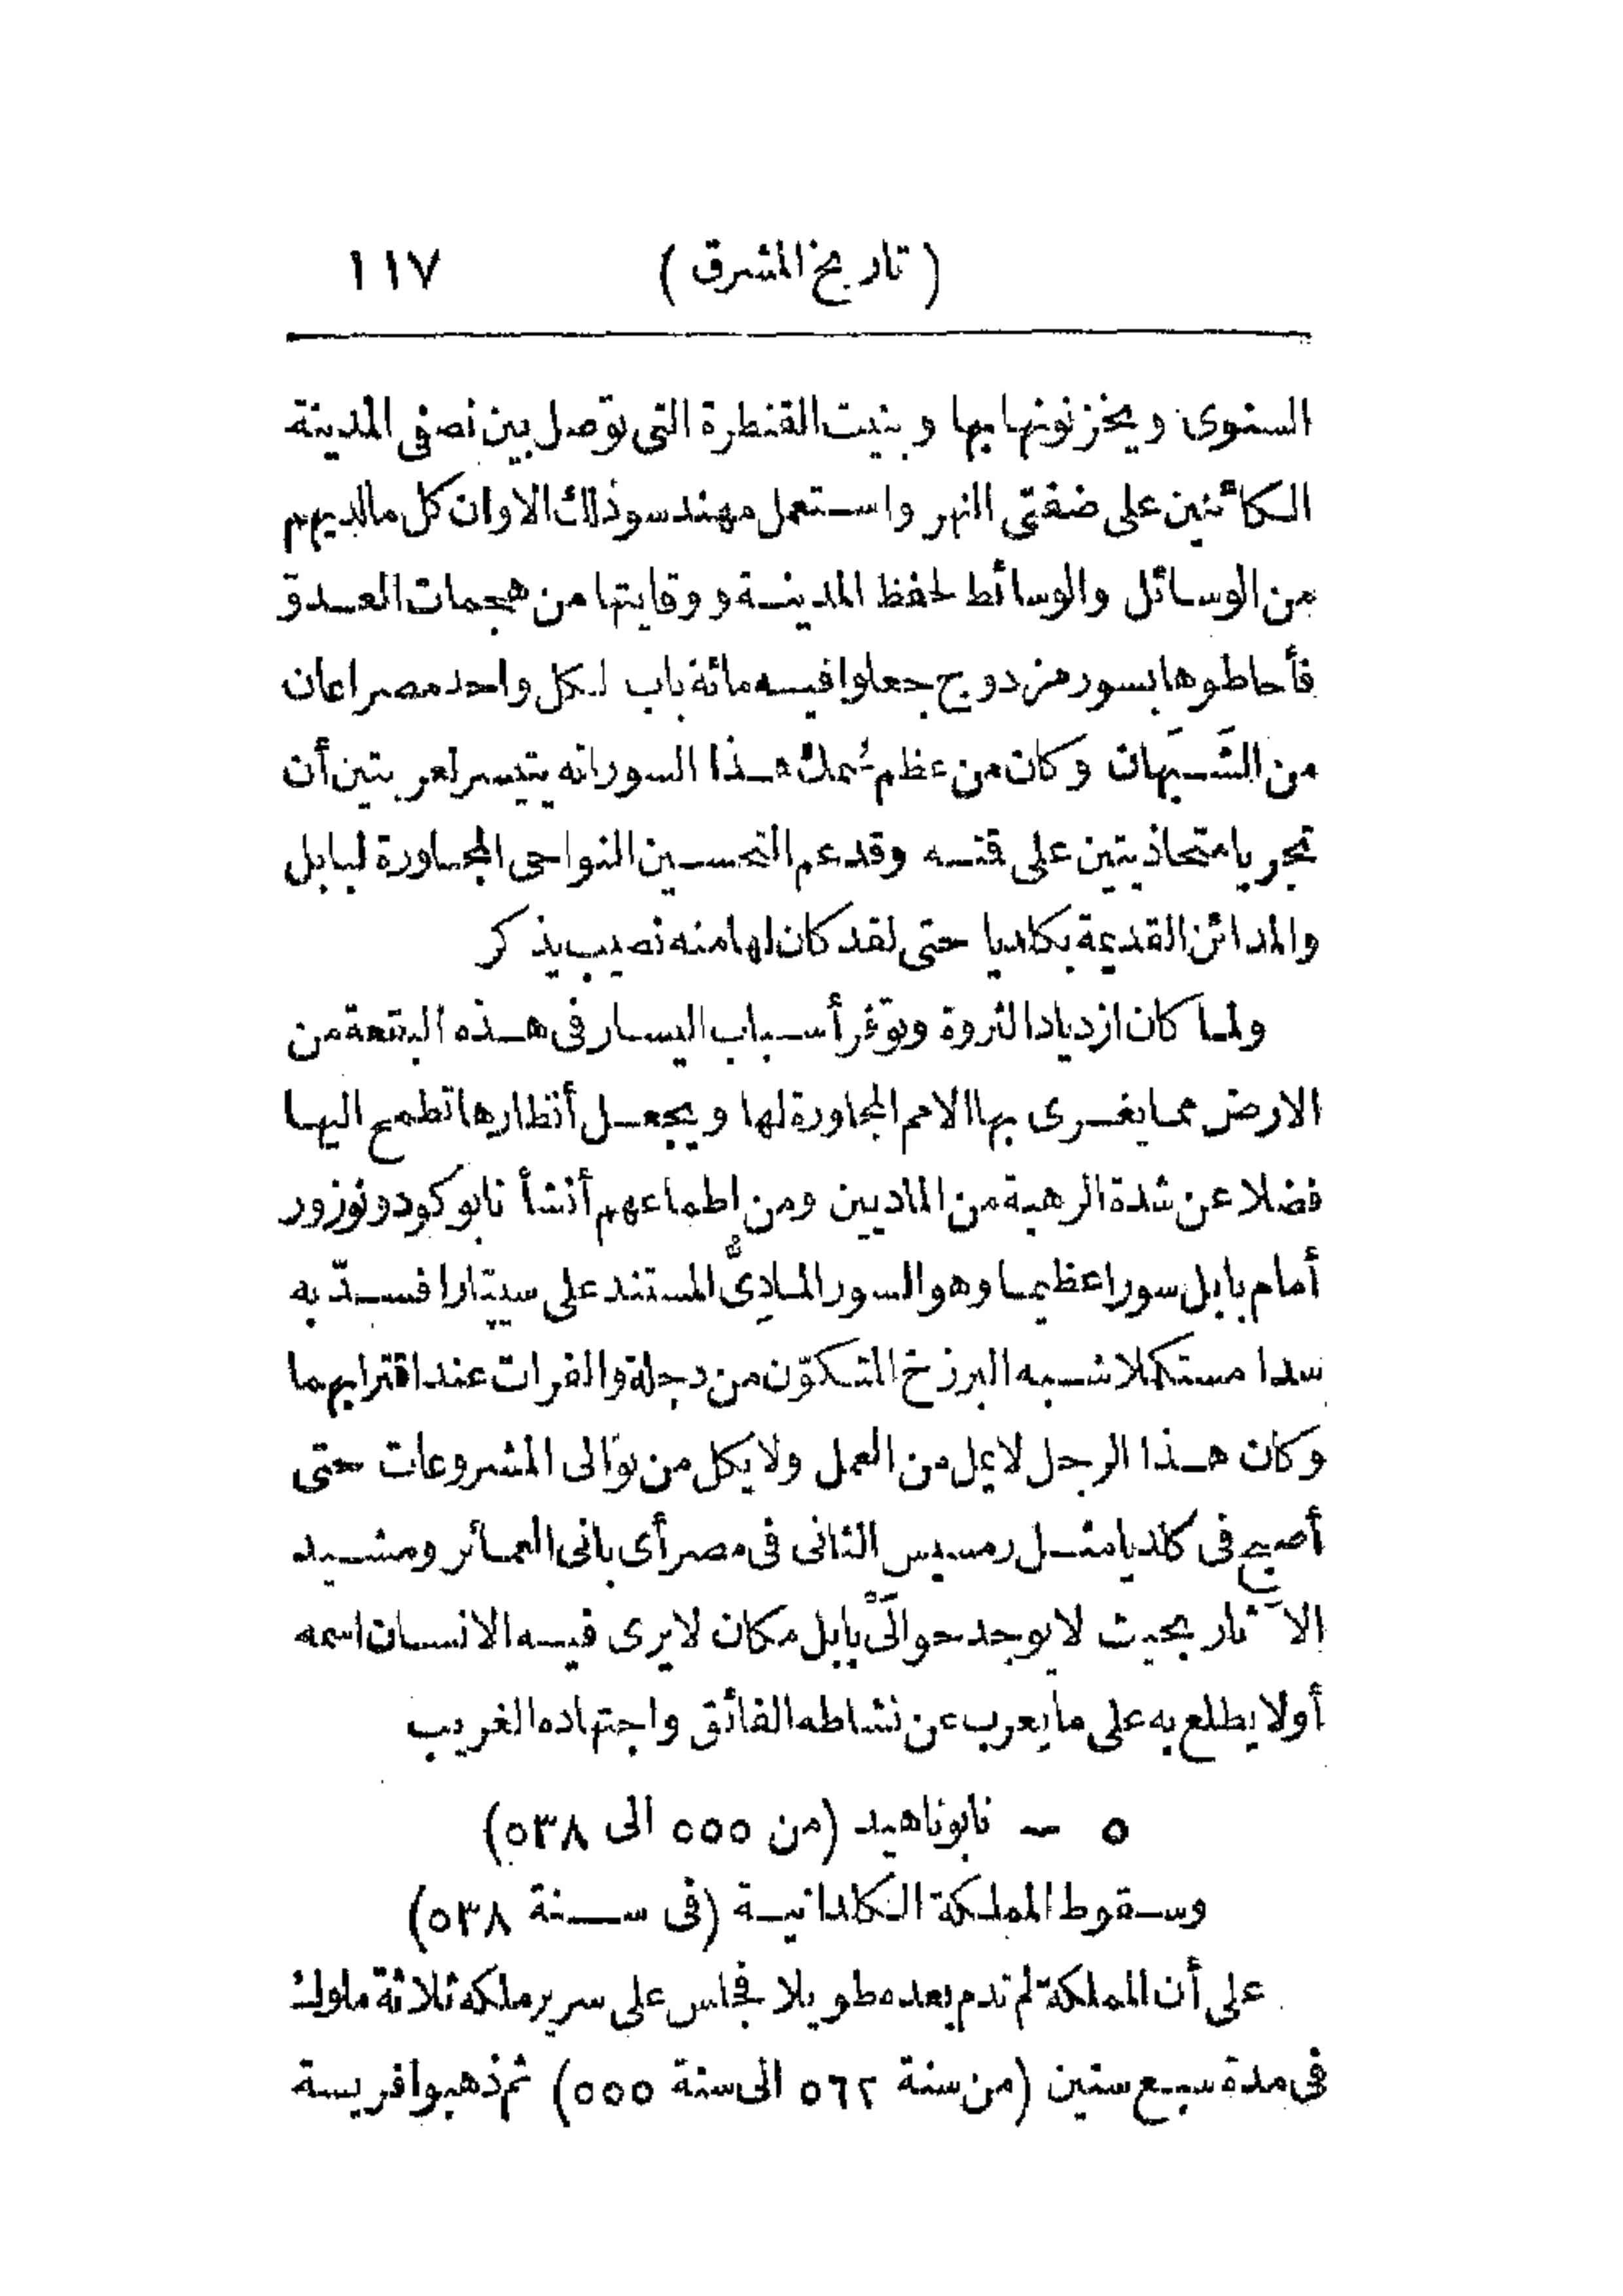 (تاريخ المشرق) ١١٧
السنوى ويخزنونها بها وبنيت القنطرة التى توصل بين نصفى المدينة
الكائنين على ضفتى النهر واستعمل مهندسو ذلك الاوان كل مالديهم
من الوسائل والوسائط لحفظ المدينة ووقايتها من هجمات العدوّ
فأحاطوها بسور مزدوج جعلوا فيه مائة باب لكل واحد مصراعان
من الشَّبَهان وكان من عظم سُمك هذا السور انه يتيسر لعربتين أن
تجريا متحاذيتين على قته وقد عم التحسين النواحى المجاورة لبابل
والمدائن القديمة بكلديا حتى لقد كان لها منه نصيب يذكر
ولما كان ازدياد الثروة وتوفر أسباب اليسار فى هذه البقعة من
الارض مما يغرى بها الامم المجاورة لها ويجعل أنظارها تطمح اليها
فضلا عن شدة الرهبة من الماديين ومن اطماعهم أنشأ نابوكودونوزور
أمام بابل سورا عظيما وهو السور المادِىُّ المستند على سيپّارا فسدّ به
سدا مستكملا شبه البرزخ المتكوّن من دجلة والفرات عند اقترابهما
وكان هذا الرجل لا يمل من العمل ولا يكل من توالى المشروعات حتى
أصبح فى كلديا مثل رمسيس الثانى فى مصر أى بانى العمائر ومشيد
الآثار بحيث لا يوجد حوالَىْ بابل مكان لا يرى فيه الانسان اسمه
أولا يطلع به على ما يعرب عن نشاطه الفائق واجتهاده الغريب
٥ – نابوناهيد (من ٥٥٥ الى ٥٣٨)
وسقوط المملكة الكلدانية (فى سنة ٥٣٨)
على أن المملكة لم تدم بعده طويلا فجلس على سرير ملكه ثلاثة ملوك
فى مدة سبع سنين (من سنة ٥٦٢ الى سنة ٥٥٥) ثم ذهبوا فريسة